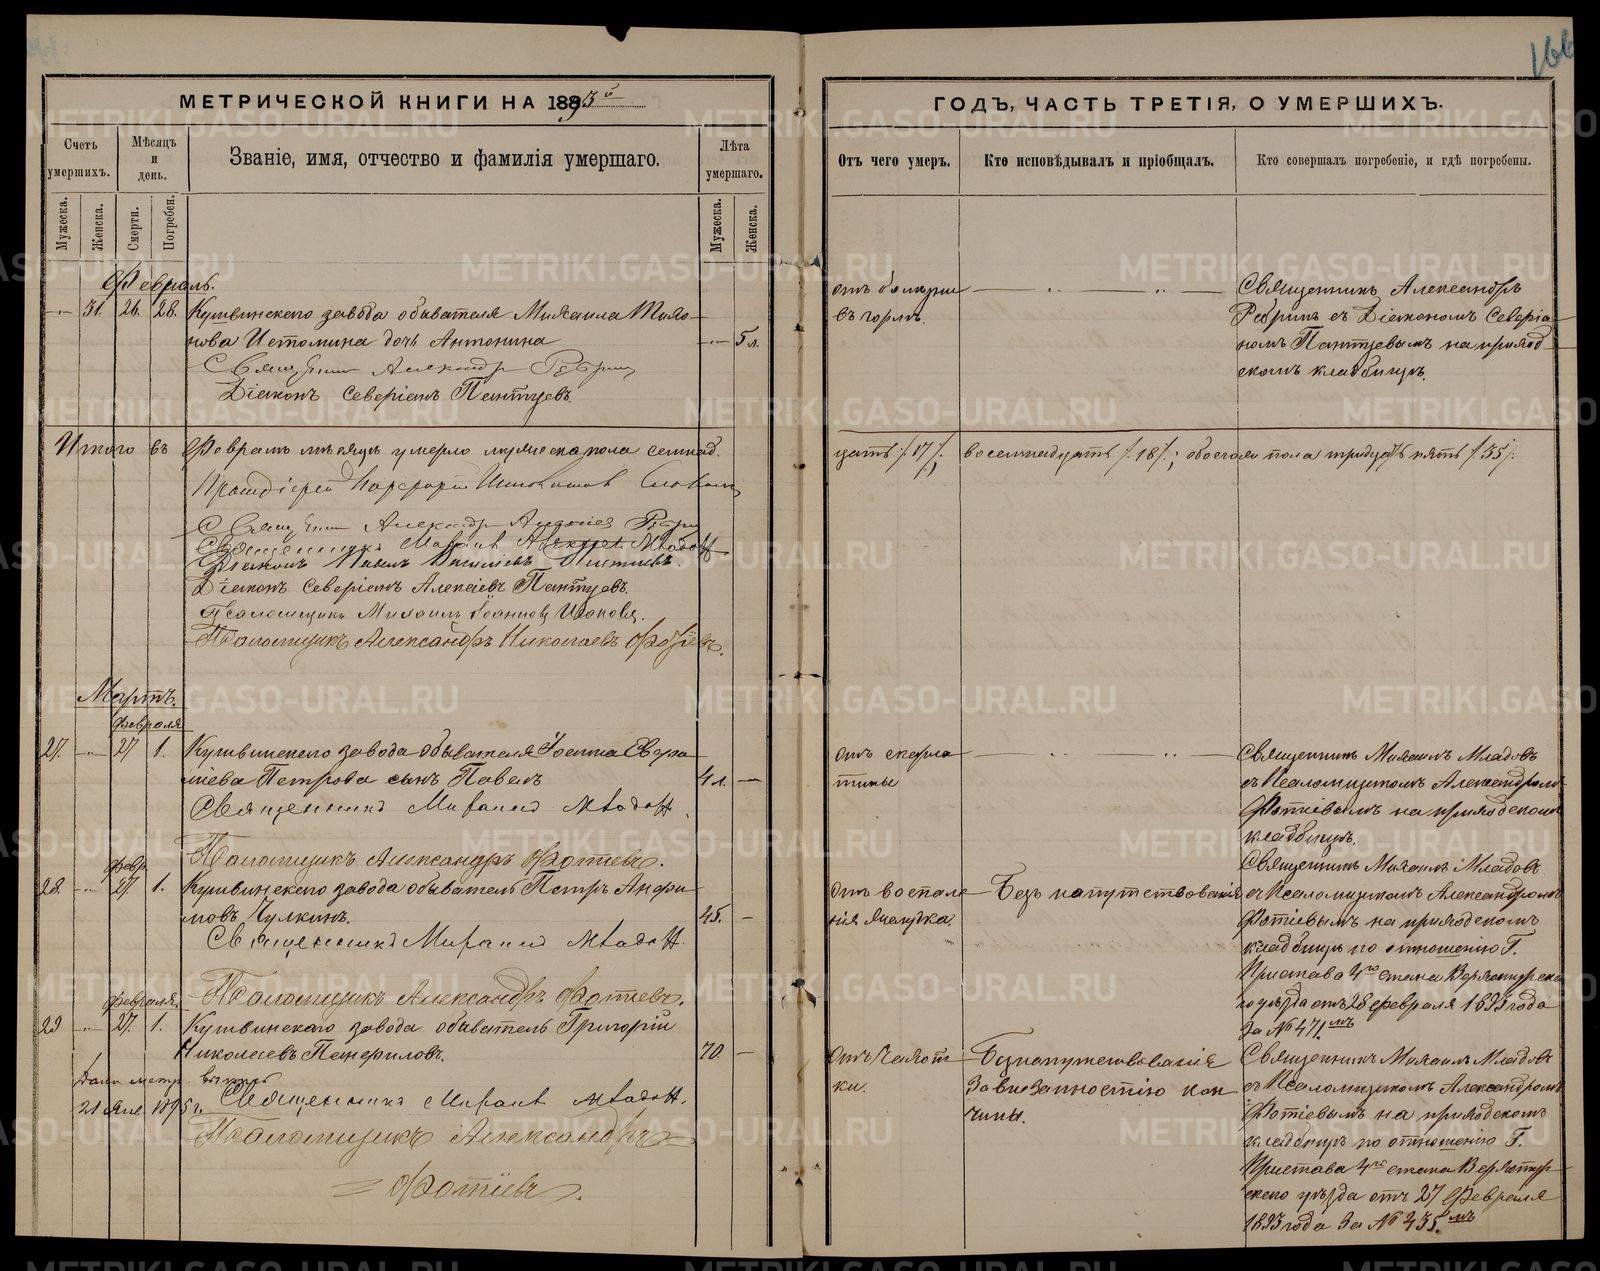 166
МЕТРИЧЕСКОЙ КНИГИ НА 1893й
ГОДЪ, ЧАСТЬ ТРЕТІЯ, О УМЕРШИХЪ.
Счетъ умершихъ.
Мужеска.
Женска.
Мѣсяцъ и день.
Смерти.
Погребен.
Званіе, имя, отчество и фамилія умершаго.
Лѣта умершаго.
Мужеска.
Женска.
Отъ чего умеръ.
Кто исповѣдывалъ и пріобщалъ.
Кто совершалъ погребеніе, и гдѣ погребены.
Февраль.
31. 26. 28. Кушвинскаго завода обывателя Михаила
нова Истомина дочь Антонина 5 л.
Священникъ Александръ
Діаконъ Северіанъ Пантуевъ.
отъ
въ горлѣ.
Священникъ Александръ
съ Діакономъ Северіа-
номъ Пантуевымъ на приход-
скомъ кладбищѣ.
Итого въ Февралѣ мѣсяцѣ умерло мужеска пола семнад-
цать /17/, восемнадцать /18/; обоего пола тридцать пять /35/.
Протоіерей
Священникъ Александръ
Священникъ Михаилъ Младовъ
Діаконъ Павелъ
Діаконъ Северіанъ Алексіевъ Пантуевъ.
Псаломщикъ Михаилъ Іоанновъ
Псаломщикъ Александръ Николаевъ Фотіевъ.
Мартъ.
Февраля
27. 27 1. Кушвинскаго завода обывателя Іоанна Евра-
міева Петрова сынъ Павелъ 4 л.
Священникъ Михаилъ Младовъ.
Псаломщикъ Александръ Фотіевъ.
отъ скарла-
тины
Священникъ Михаилъ Младовъ
съ Псаломщикомъ Александромъ
Фотіевымъ на приходскомъ
кладбищѣ.
Февр.
28. 27 1. Кушвинскаго завода обыватель Петръ Анфи-
мовъ Чулкинъ. 45.
Священникъ Михаилъ Младовъ.
Псаломщикъ Александръ Фотіевъ.
отъ воспале-
нія желудка.
Безъ напутствованія
Священникъ Михаилъ Младовъ
съ Псаломщикомъ Александромъ
Фотіевымъ на приходскомъ
кладбищѣ по отношенію Г.
Пристава 4го стана Верхотурска-
го уѣзда отъ 28 февраля 1893 года
За № 471мъ
Февраля
29 27. 1. Кушвинскаго завода обыватель Григорій
Николаевъ Панфиловъ. 70.
Дана метр. выпись
21 Янв. 1895 г.
Священникъ Михаилъ Младовъ.
Псаломщикъ Александръ
Фотіевъ.
Отъ чахот-
ки.
Безъ напутствованія
За внезапностію кон-
чины.
Священникъ Михаилъ Младовъ
съ Псаломщикомъ Александромъ
Фотіевымъ на приходскомъ
кладбищѣ по отношенію Г.
Пристава 4го стана Верхотур-
скаго уѣзда отъ 27 Февраля
1893 года За № 435.мъ
METRIKI.GASO-URAL.RU